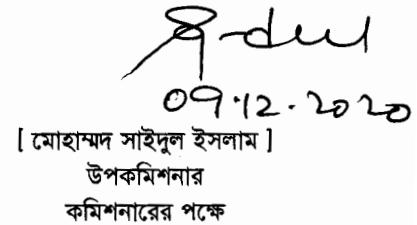 09.12.2020
[ মোহাম্মদ সাইদুল ইসলাম ]
উপকমিশনার
কমিশনারের পক্ষে